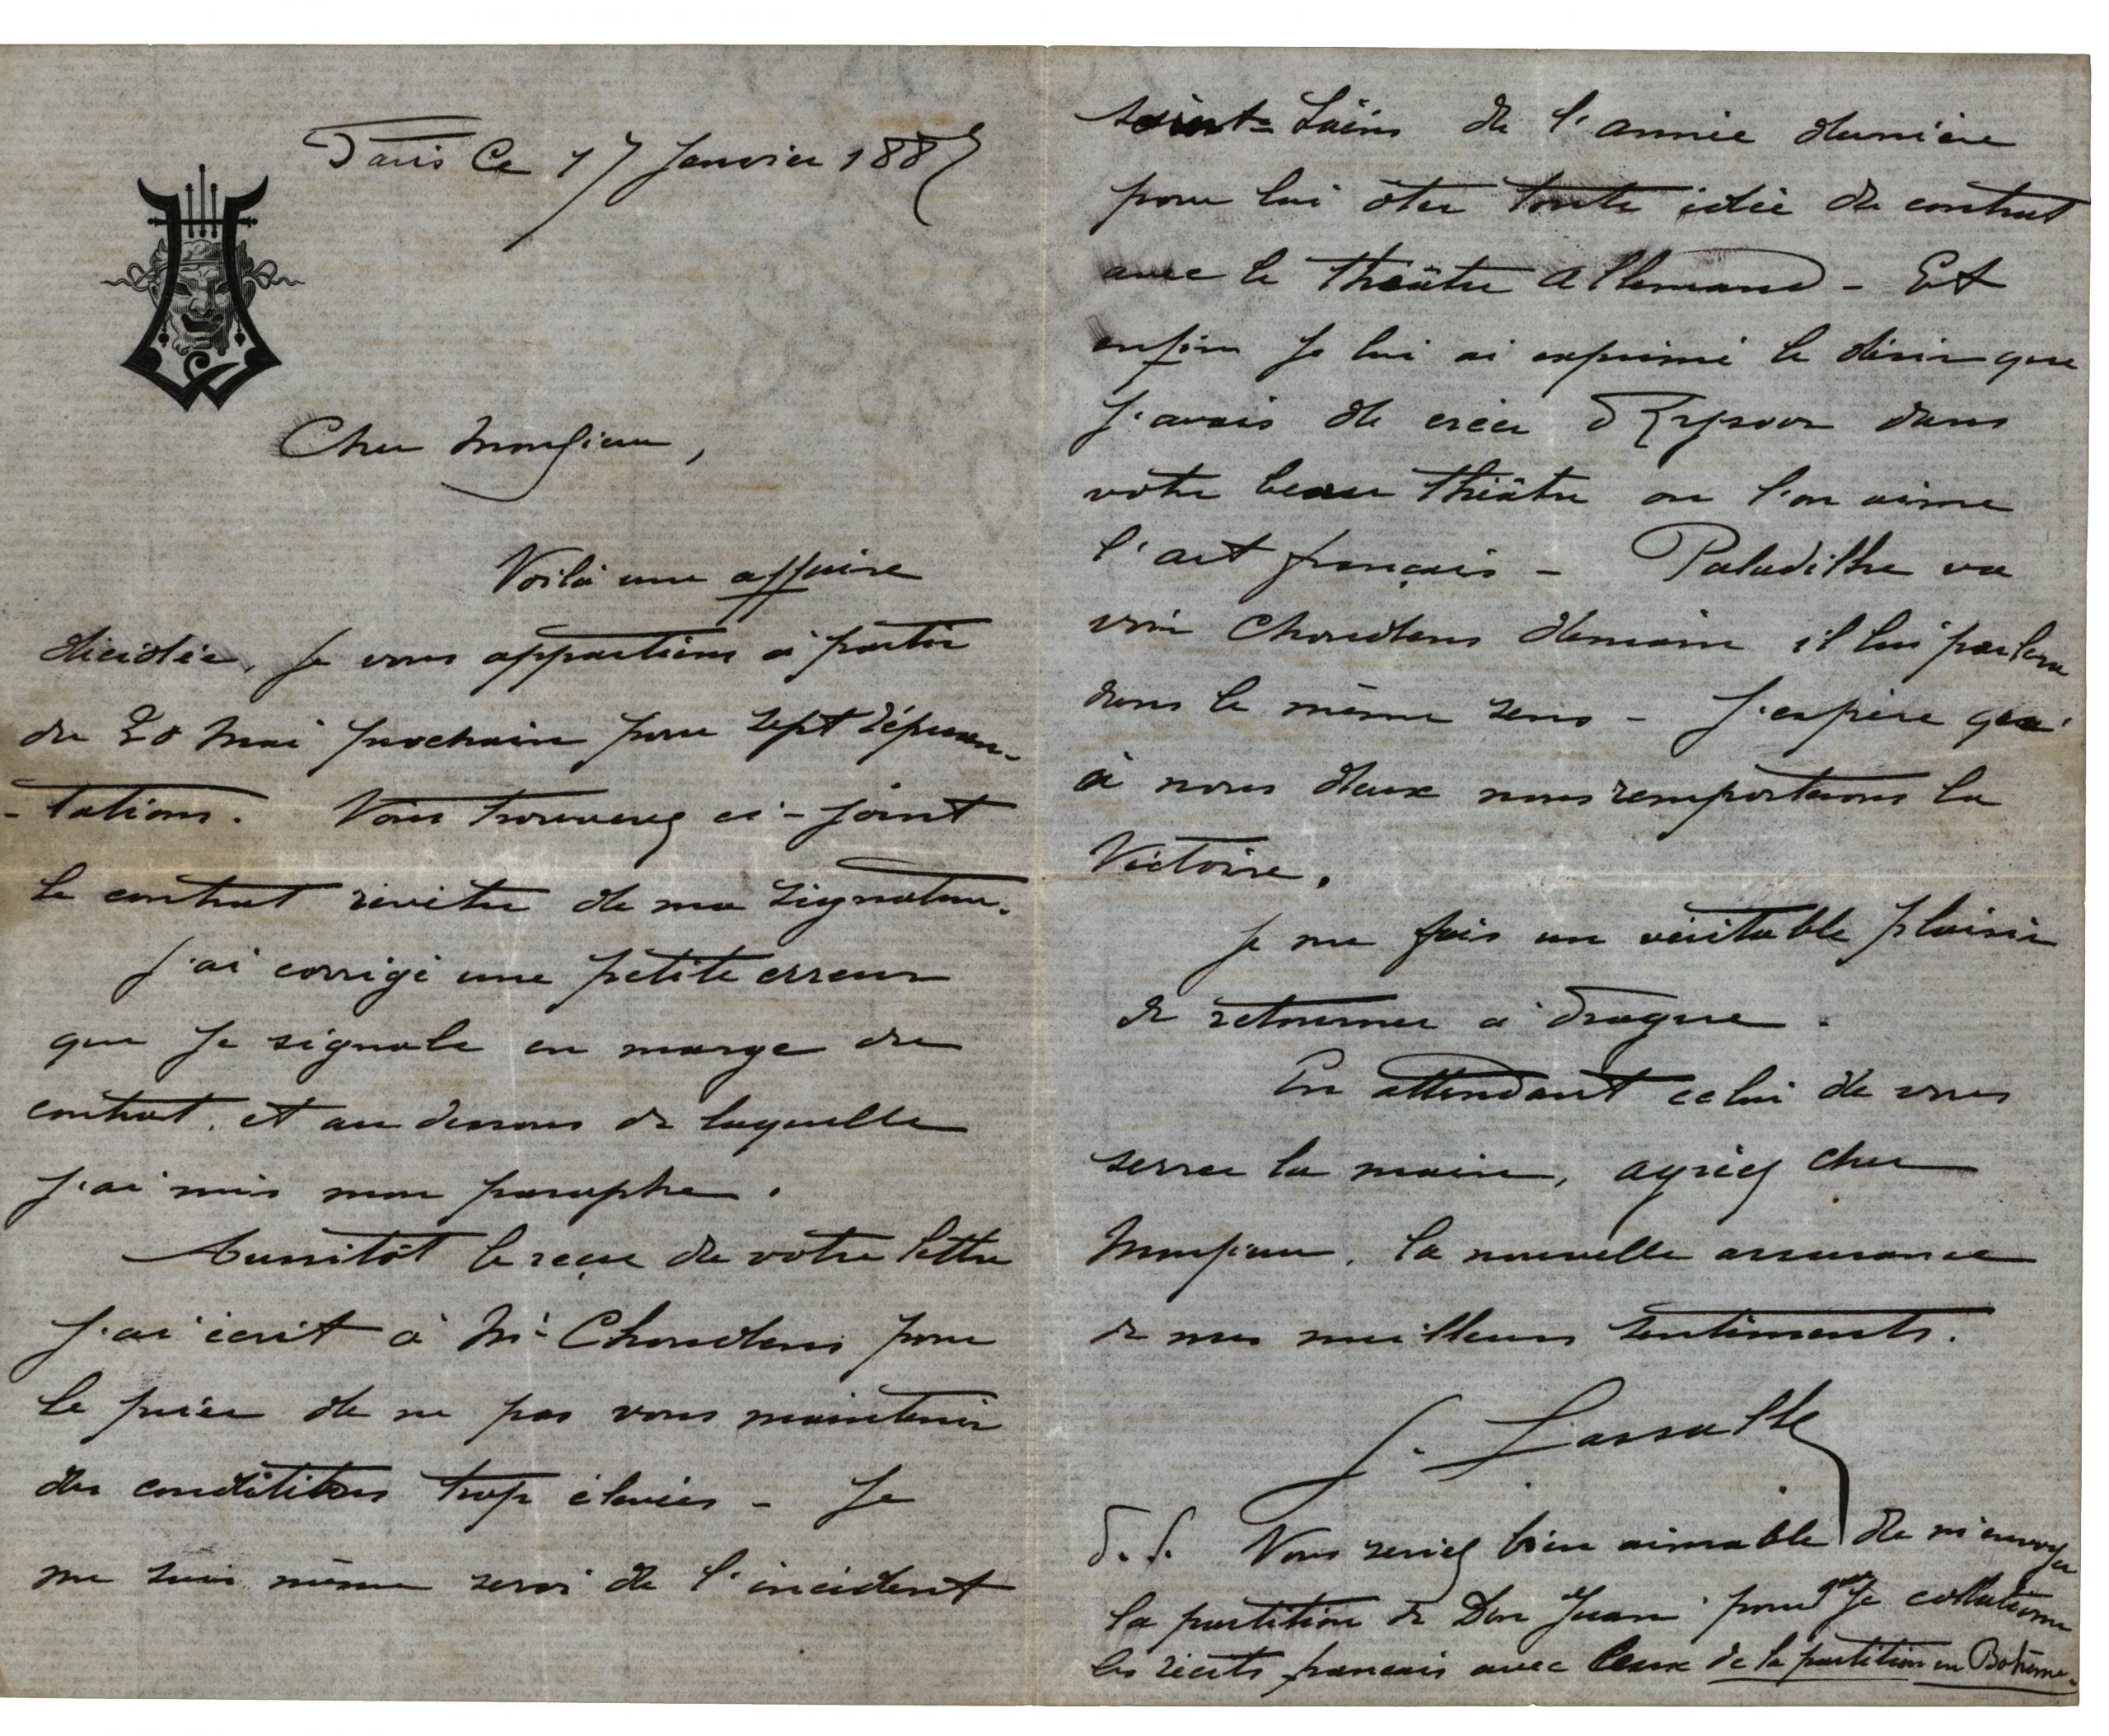 Paris Ce 17 Janvier 1887
Cher Monsieur,
Voilà une affaire
décidée, Je vous appartiens à partir
du 20 Mai prochain pour sept représen-
-tations. Vous trouverez ci-joint
le contrat revêtu de ma signature.
J'ai corrigé une petite erreur
que Je signale en marge du
contrat, et au dessous de laquelle
J'ai mis mon paraphe.
Aussitôt le reçue de votre lettre
J'ai écrit à Mr Choudens pour
le prier de ne pas vous maintenir
des conditions trop élevées - Je
me suis même servi de l'incident
Saint-Saëns de l'année dernière
pour lui ôter toute idée de contrat
avec le théâtre Allemand - Et
enfin Je lui ai exprimé le désir que
J'avais de créer Rysoor dans
votre beau théâtre ou l'on aime
l'art français - Paladilhe va
voir Choudens demain il lui parlera
dans le même sens - J'espère qu'
à nous deux nous remporterons la
Victoire.
Je me fais un véritable plaisir
de retourner à Prague.
En attendant celui de vous
serrer la main, agréez cher
Monsieur, la nouvelle assurance
de mes meilleurs sentiments.
J. Lassalle
P.S. Vous seriez bien aimable de m'envoyer
la partition de Don Juan pour que Je collationne
les récits français avec ceux de la partition en Bohème.